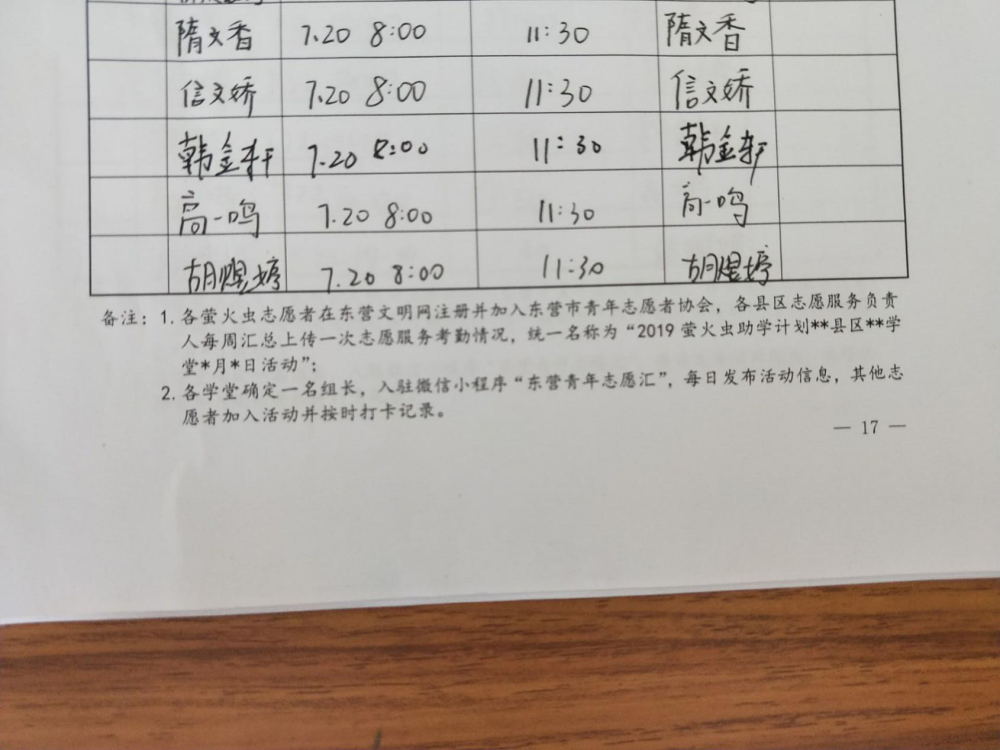 隋文香 7.20 8:00 11:30 隋文香
信文娇 7.20 8:00 11:30 信文娇
韩金轩 7.20 8:00 11:30 韩金轩
高一鸣 7.20 8:00 11:30 高一鸣
胡煜婷 7.20 8:00 11:30 胡煜婷
备注：1. 各萤火虫志愿者在东营文明网注册并加入东营市青年志愿者协会，各县区志愿服务负责
人每周汇总上传一次志愿服务考勤情况，统一名称为“2019 萤火虫助学计划**县区**学
堂*月*日活动”；
2. 各学堂确定一名组长，入驻微信小程序“东营青年志愿汇”，每日发布活动信息，其他志
愿者加入活动并按时打卡记录。
— 17 —